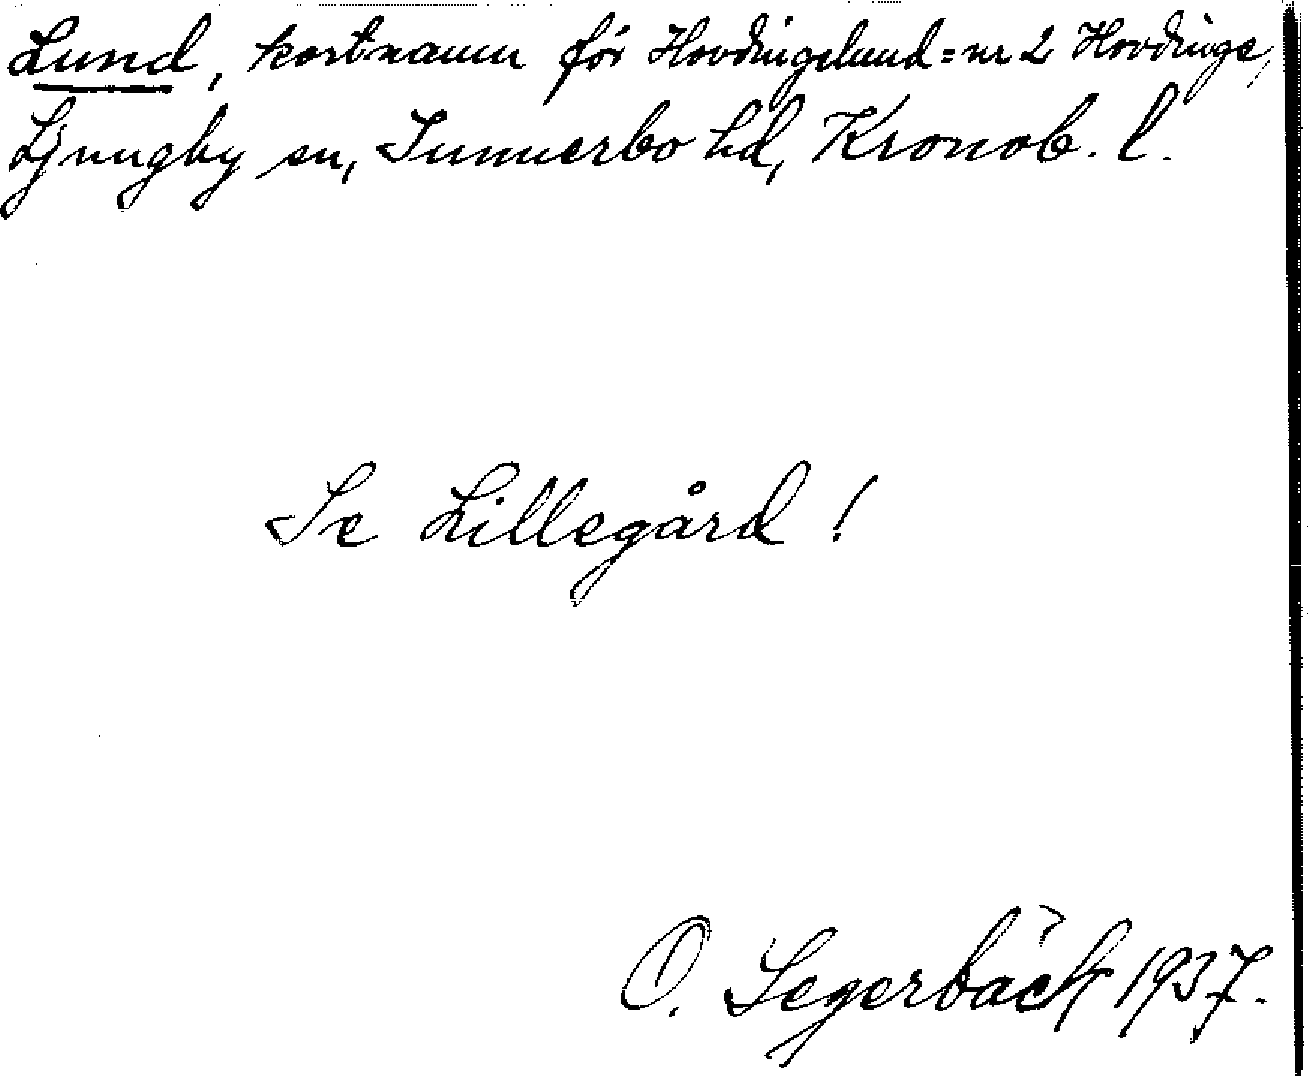 Lund, kortnamn för Hovdingelund = nr 2 Hovdinge,
Ljungby sn, Sunnerbo hd, Kronob. l.
Se Lillegård!
O. Segerbäck 1937.